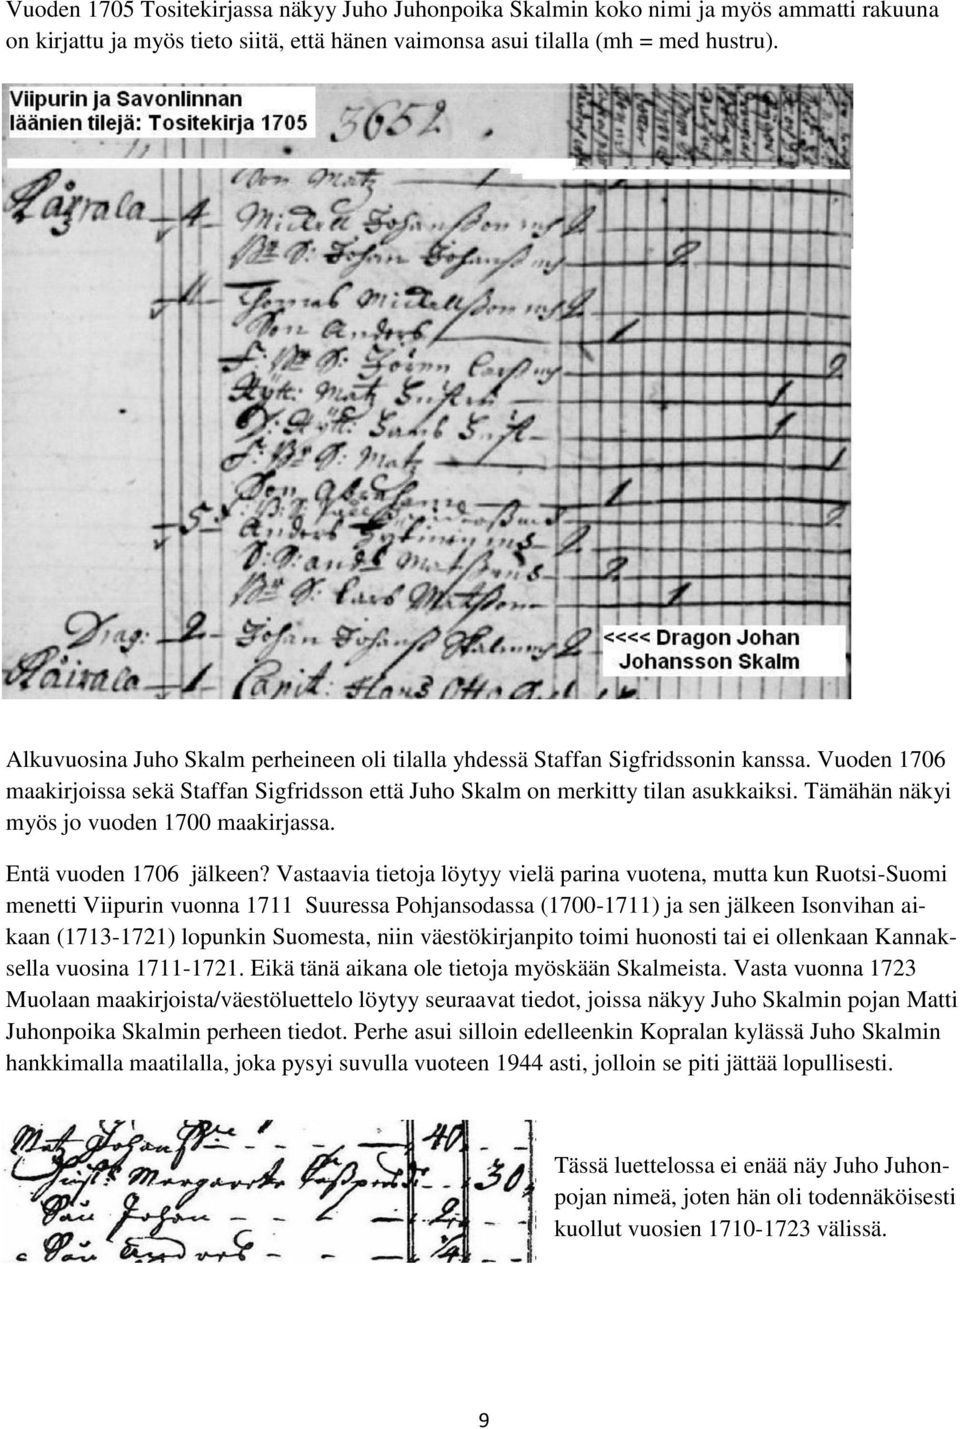 Vuoden 1705 Tositekirjassa näkyy Juho Juhonpoika Skalmin koko nimi ja myös ammatti rakuuna
on kirjattu ja myös tieto siitä, että hänen vaimonsa asui tilalla (mh = med hustru).
Viipurin ja Savonlinnan
läänien tilejä: Tositekirja 1705
3652.
Son Matz 1
4 Johansson mh 2
Br S: Johan Johanss mh 2
Thomas Mickellsson mh 2
Son Anders 1
F: Br S: Jören Larss mh 2
Matz 1
1
F: Br S: Matz 1
Son 1
5
Anders 2
S: S: Matssons 2
Br S: Lars Matsson 1
Drag: 2 Johan Johanss Skalm mh 2
<<<< Dragon Johan
Johansson Skalm
Kåirala 1 Capit: Hans Otto
Alkuvuosina Juho Skalm perheineen oli tilalla yhdessä Staffan Sigfridssonin kanssa. Vuoden 1706
maakirjoissa sekä Staffan Sigfridsson että Juho Skalm on merkitty tilan asukkaiksi. Tämähän näkyi
myös jo vuoden 1700 maakirjassa.
Entä vuoden 1706 jälkeen? Vastaavia tietoja löytyy vielä parina vuotena, mutta kun Ruotsi-Suomi
menetti Viipurin vuonna 1711 Suuressa Pohjansodassa (1700-1711) ja sen jälkeen Isonvihan ai-
kaan (1713-1721) lopunkin Suomesta, niin väestökirjanpito toimi huonosti tai ei ollenkaan Kannak-
sella vuosina 1711-1721. Eikä tänä aikana ole tietoja myöskään Skalmeista. Vasta vuonna 1723
Muolaan maakirjoista/väestöluettelo löytyy seuraavat tiedot, joissa näkyy Juho Skalmin pojan Matti
Juhonpoika Skalmin perheen tiedot. Perhe asui silloin edelleenkin Kopralan kylässä Juho Skalmin
hankkimalla maatilalla, joka pysyi suvulla vuoteen 1944 asti, jolloin se piti jättää lopullisesti.
Matz 40
Margareta 30
Johan 2
Anders 1/4
Tässä luettelossa ei enää näy Juho Juhon-
pojan nimeä, joten hän oli todennäköisesti
kuollut vuosien 1710-1723 välissä.
9